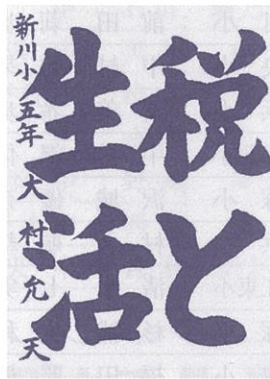 税と
生活
新川小五年 大村允天